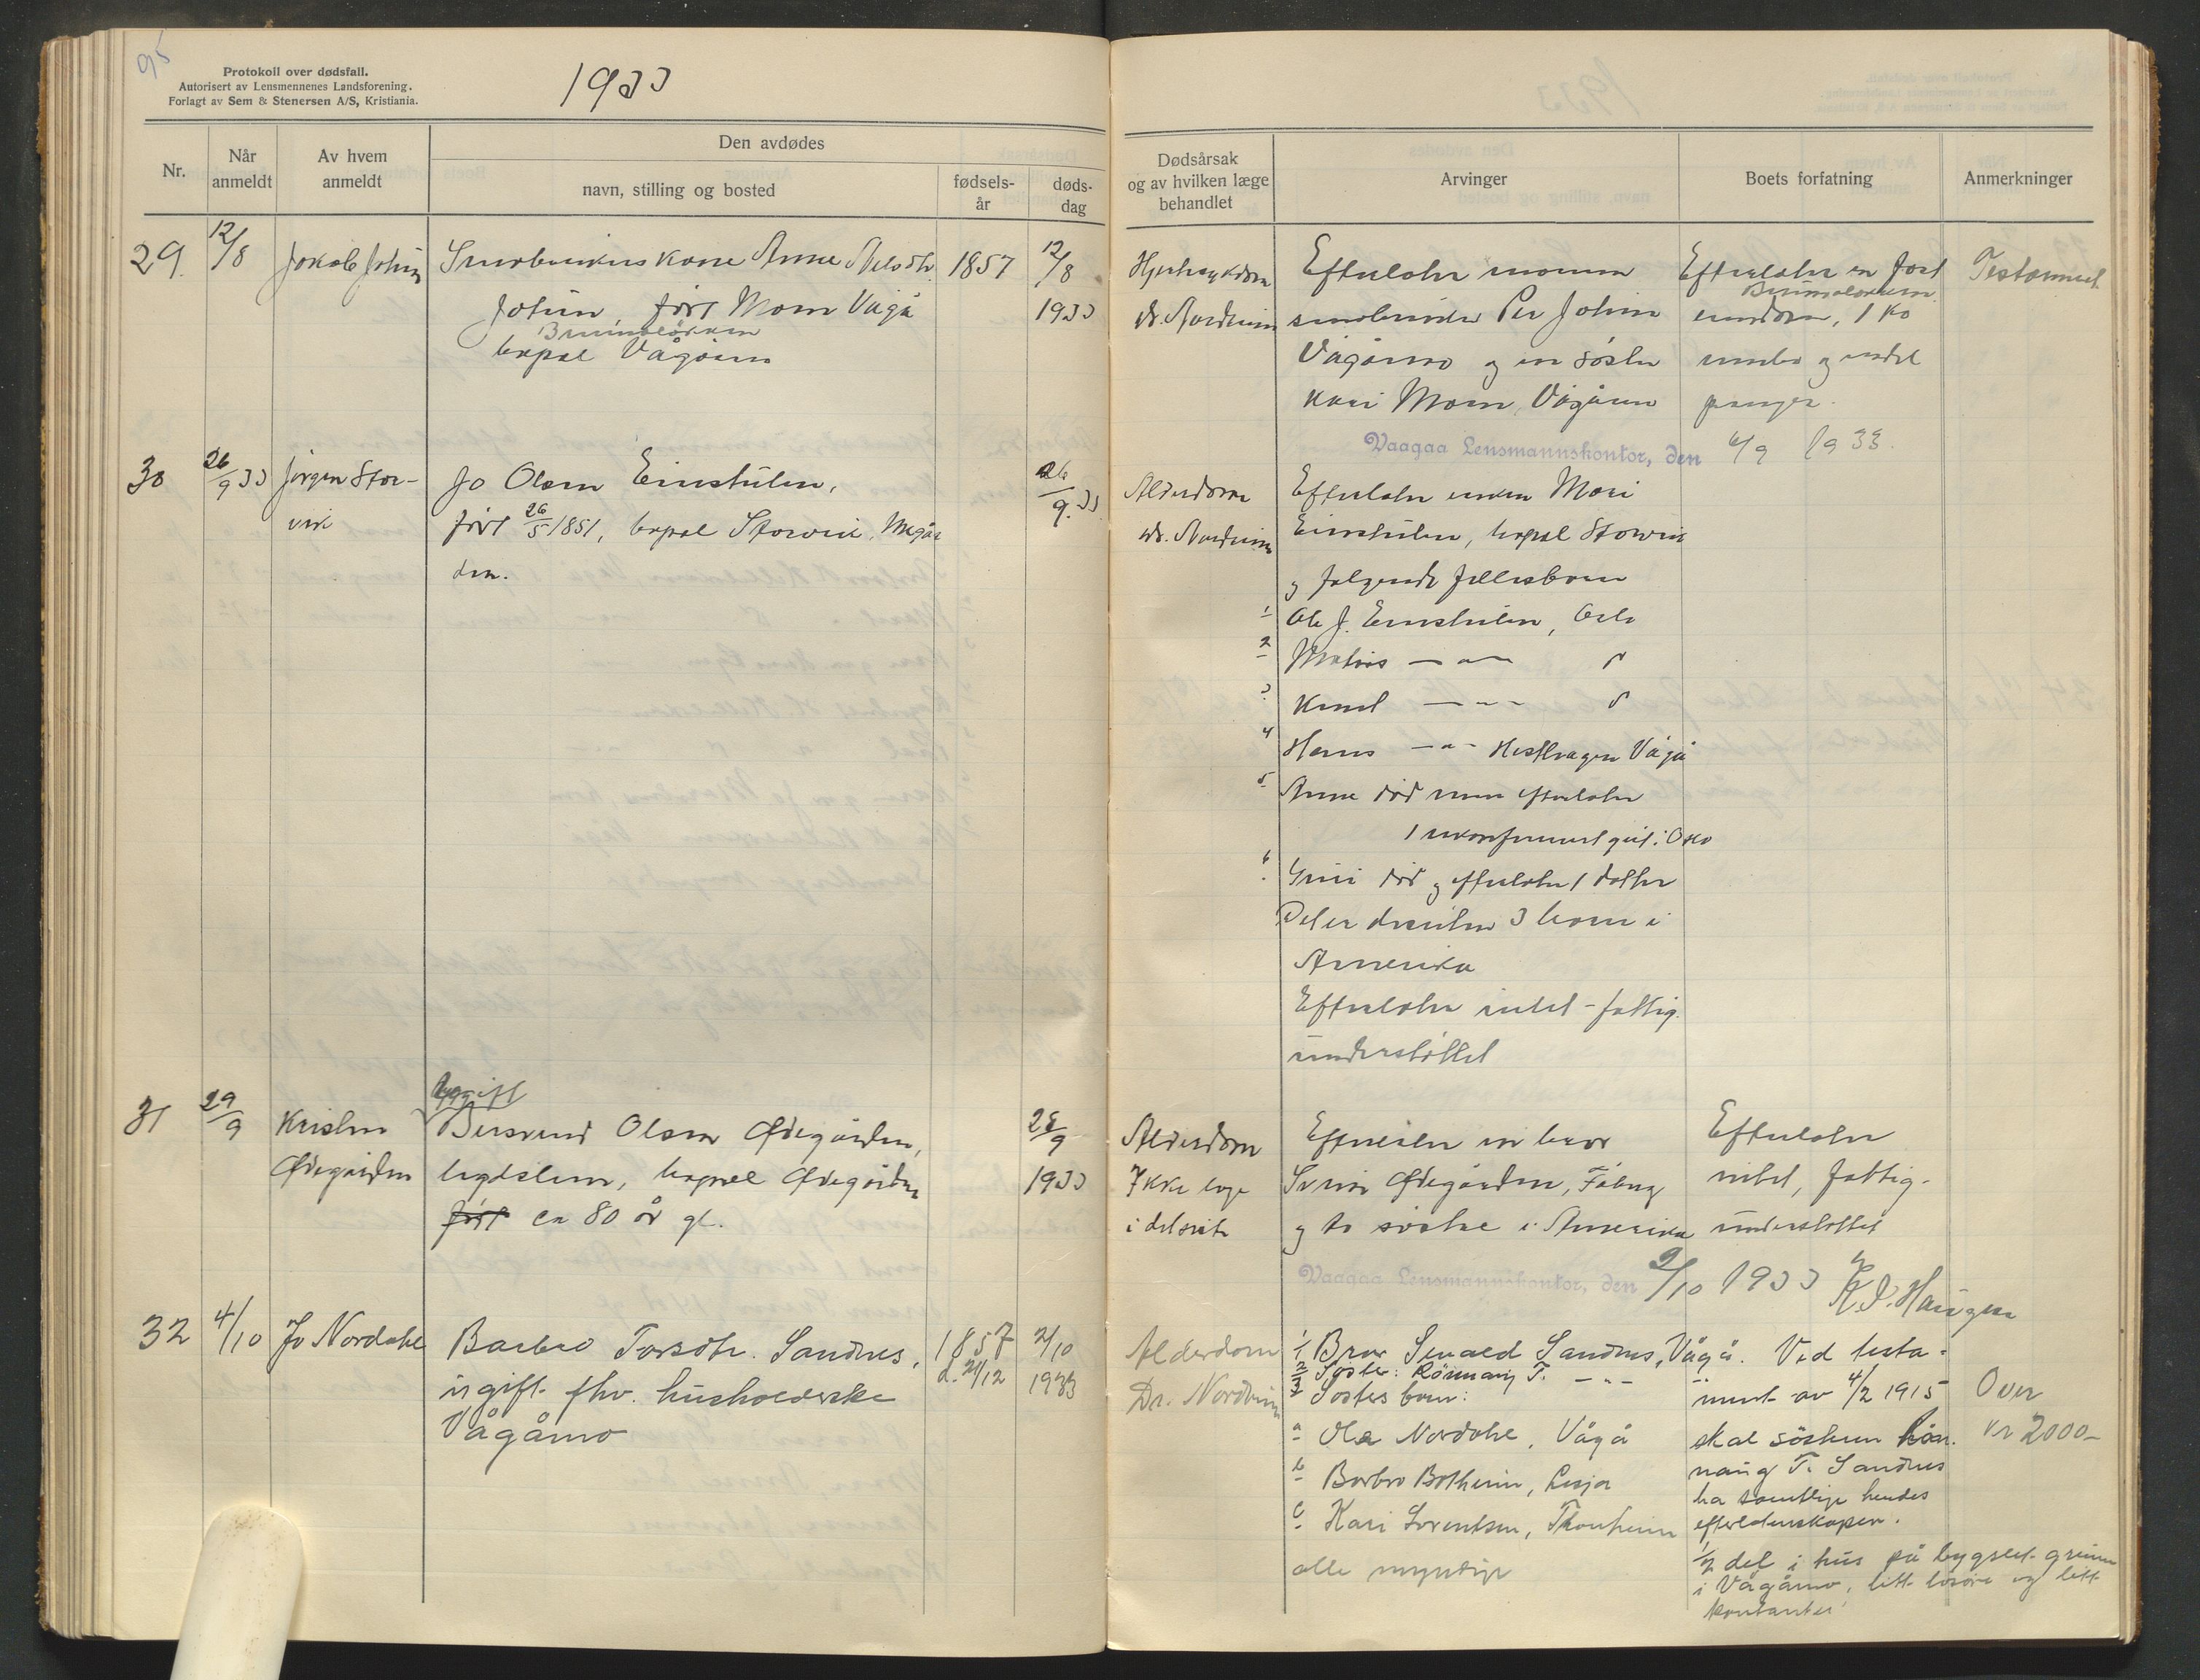 95
Protokoll over dødsfall.
Autorisert av Lensmennenes Landsforening.
Forlagt av Sem & Stenersen A/S, Kristiania.
1933
Nr.
Når anmeldt
Av hvem anmeldt
Den avdødes
navn, stilling og bosted
fødsels-år
døds-dag
Dødsårsak og av hvilken læge behandlet
Arvinger
Boets forfatning
Anmerkninger
29.
12/8
Jakob
Anne Nelsdtr.
født Moen Vågå
bopæl Vågåmo
1857
12/8
1933
dr. Nordheim
Efterlater mannen
Per
Vågåmo og en søster
Kari Moen, Vågåmo
Efterlater en
1 ko
penger.
Testament
Vaagaa Lensmannskontor, den 6/9 1933.
30
26/9 33
Jørgen Stor-
vik
Jo Olsen Einstulen,
født 26/5 1851, bopæl Storvik,
26/9.33
Alderdom
dr. Nordheim
Efterlater enken Mari
Einstulen, bopæl Storvik
og følgende fellesbarn
1 Ole J. Einstulen, Oslo
2 Mathis — " —
3 Knut — " —
4 Hans — " — Vågå
5 Anne død men efterlater
1 ukonfirmert gut i Oslo
6 død og efterlater 1 datter
Det er desuten 3 barn i
Amerika
Efterlater intet - fattig-
understøttet
31
29/9
Kristen
Ødegården
Ugift
Olsen Ødegården,
legdslem, bopæl Ødegården
født ca 80 år gl.
28/9
1933
Alderdom
Ikke læge
i det siste
Efterlater en bror
Ødegården, Fåberg
og to søstre i Amerika
Efterlater
intet, fattig-
understøttet
Vaagaa Lensmannskontor, den 2/10 1933
K. P. Haugen
32
4/10
Jo Nordahl
Barbro Torsdtr. Sandnes,
ugift fhv. husholderske
Vågåmo
1857
d. 21/12
2/10
1933
Alderdom
Dr. Nordheim
1/ Bror Sandnes, Vågå.
2/ Søster: Rønnaug T. — " —
3 Søsters barn:
a Ola Nordahl, Vågå
b Barbro Botheim, Lesja
c Kari Lorentsen, Trondheim
alle myndige
Ved testa-
ment av 4/2 1915
skal søsteren Røn-
naug T. Sandnes
ha samtlige hendes
efterladenskaper.
1/2 del i hus på bygslet grunn
i Vågåmo, litt løsøre og litt
kontanter
Over
kr 2000-